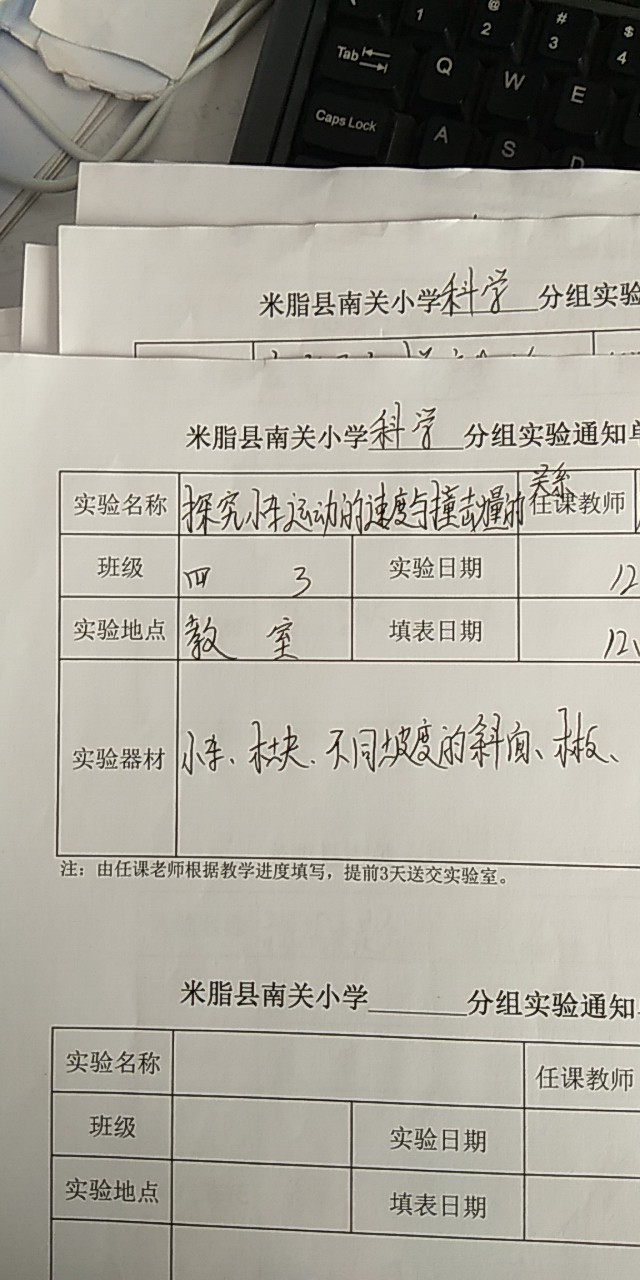 1 @ 2 # 3 $ 4
Tab Q W E
Caps Lock A S D
米脂县南关小学科学 分组实验
米脂县南关小学科学 分组实验通知单
实验名称 探究小车运动的速度与撞击力量的关系 任课教师
班级 四 3 实验日期 12
实验地点 教室 填表日期 12
实验器材 小车、木块、不同坡度的斜面、木板、
注：由任课老师根据教学进度填写，提前3天送交实验室。
米脂县南关小学______分组实验通知
实验名称 任课教师
班级 实验日期
实验地点 填表日期